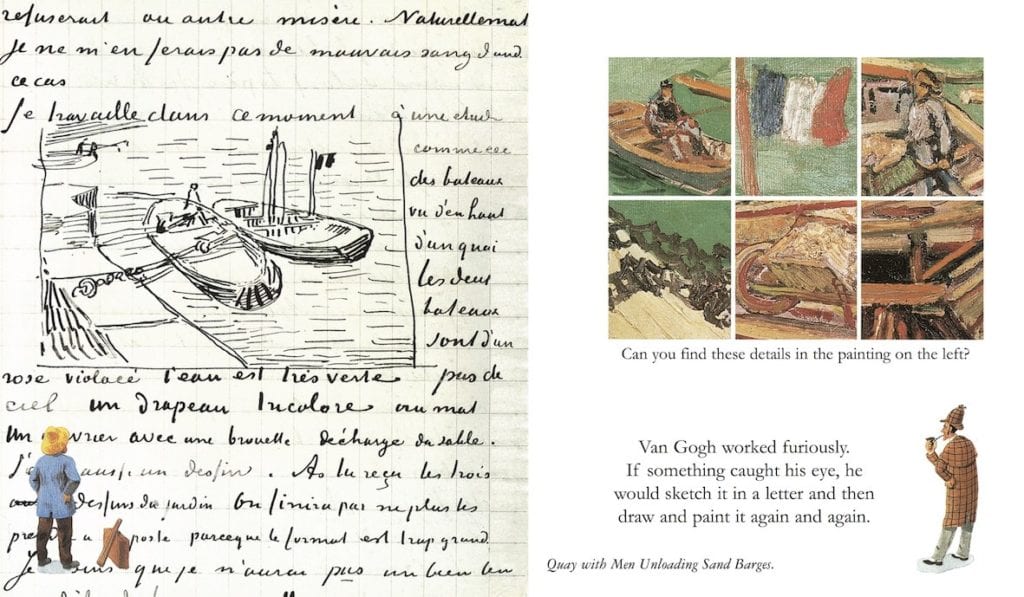 refuserait ou autre misère. Naturellement
je ne m'en ferais pas de mauvais sang dans
ce cas
Je travaille dans ce moment à une étude
comme ceci
des bateaux
vu d'en haut
d'un quai
les deux
bateaux
sont d'un
rose violacé l'eau est très verte pas de
ciel un drapeau tricolore au mat
un ouvrier avec une brouette décharge du sable.
J'en aussi un dessin. As tu reçu les trois
dessins du jardin on finira par ne plus les
prendre a poste parceque le format est trop grand.
Je que je n'aurai pas un bien
Can you find these details in the painting on the left?
Van Gogh worked furiously.
If something caught his eye, he
would sketch it in a letter and then
draw and paint it again and again.
Quay with Men Unloading Sand Barges.